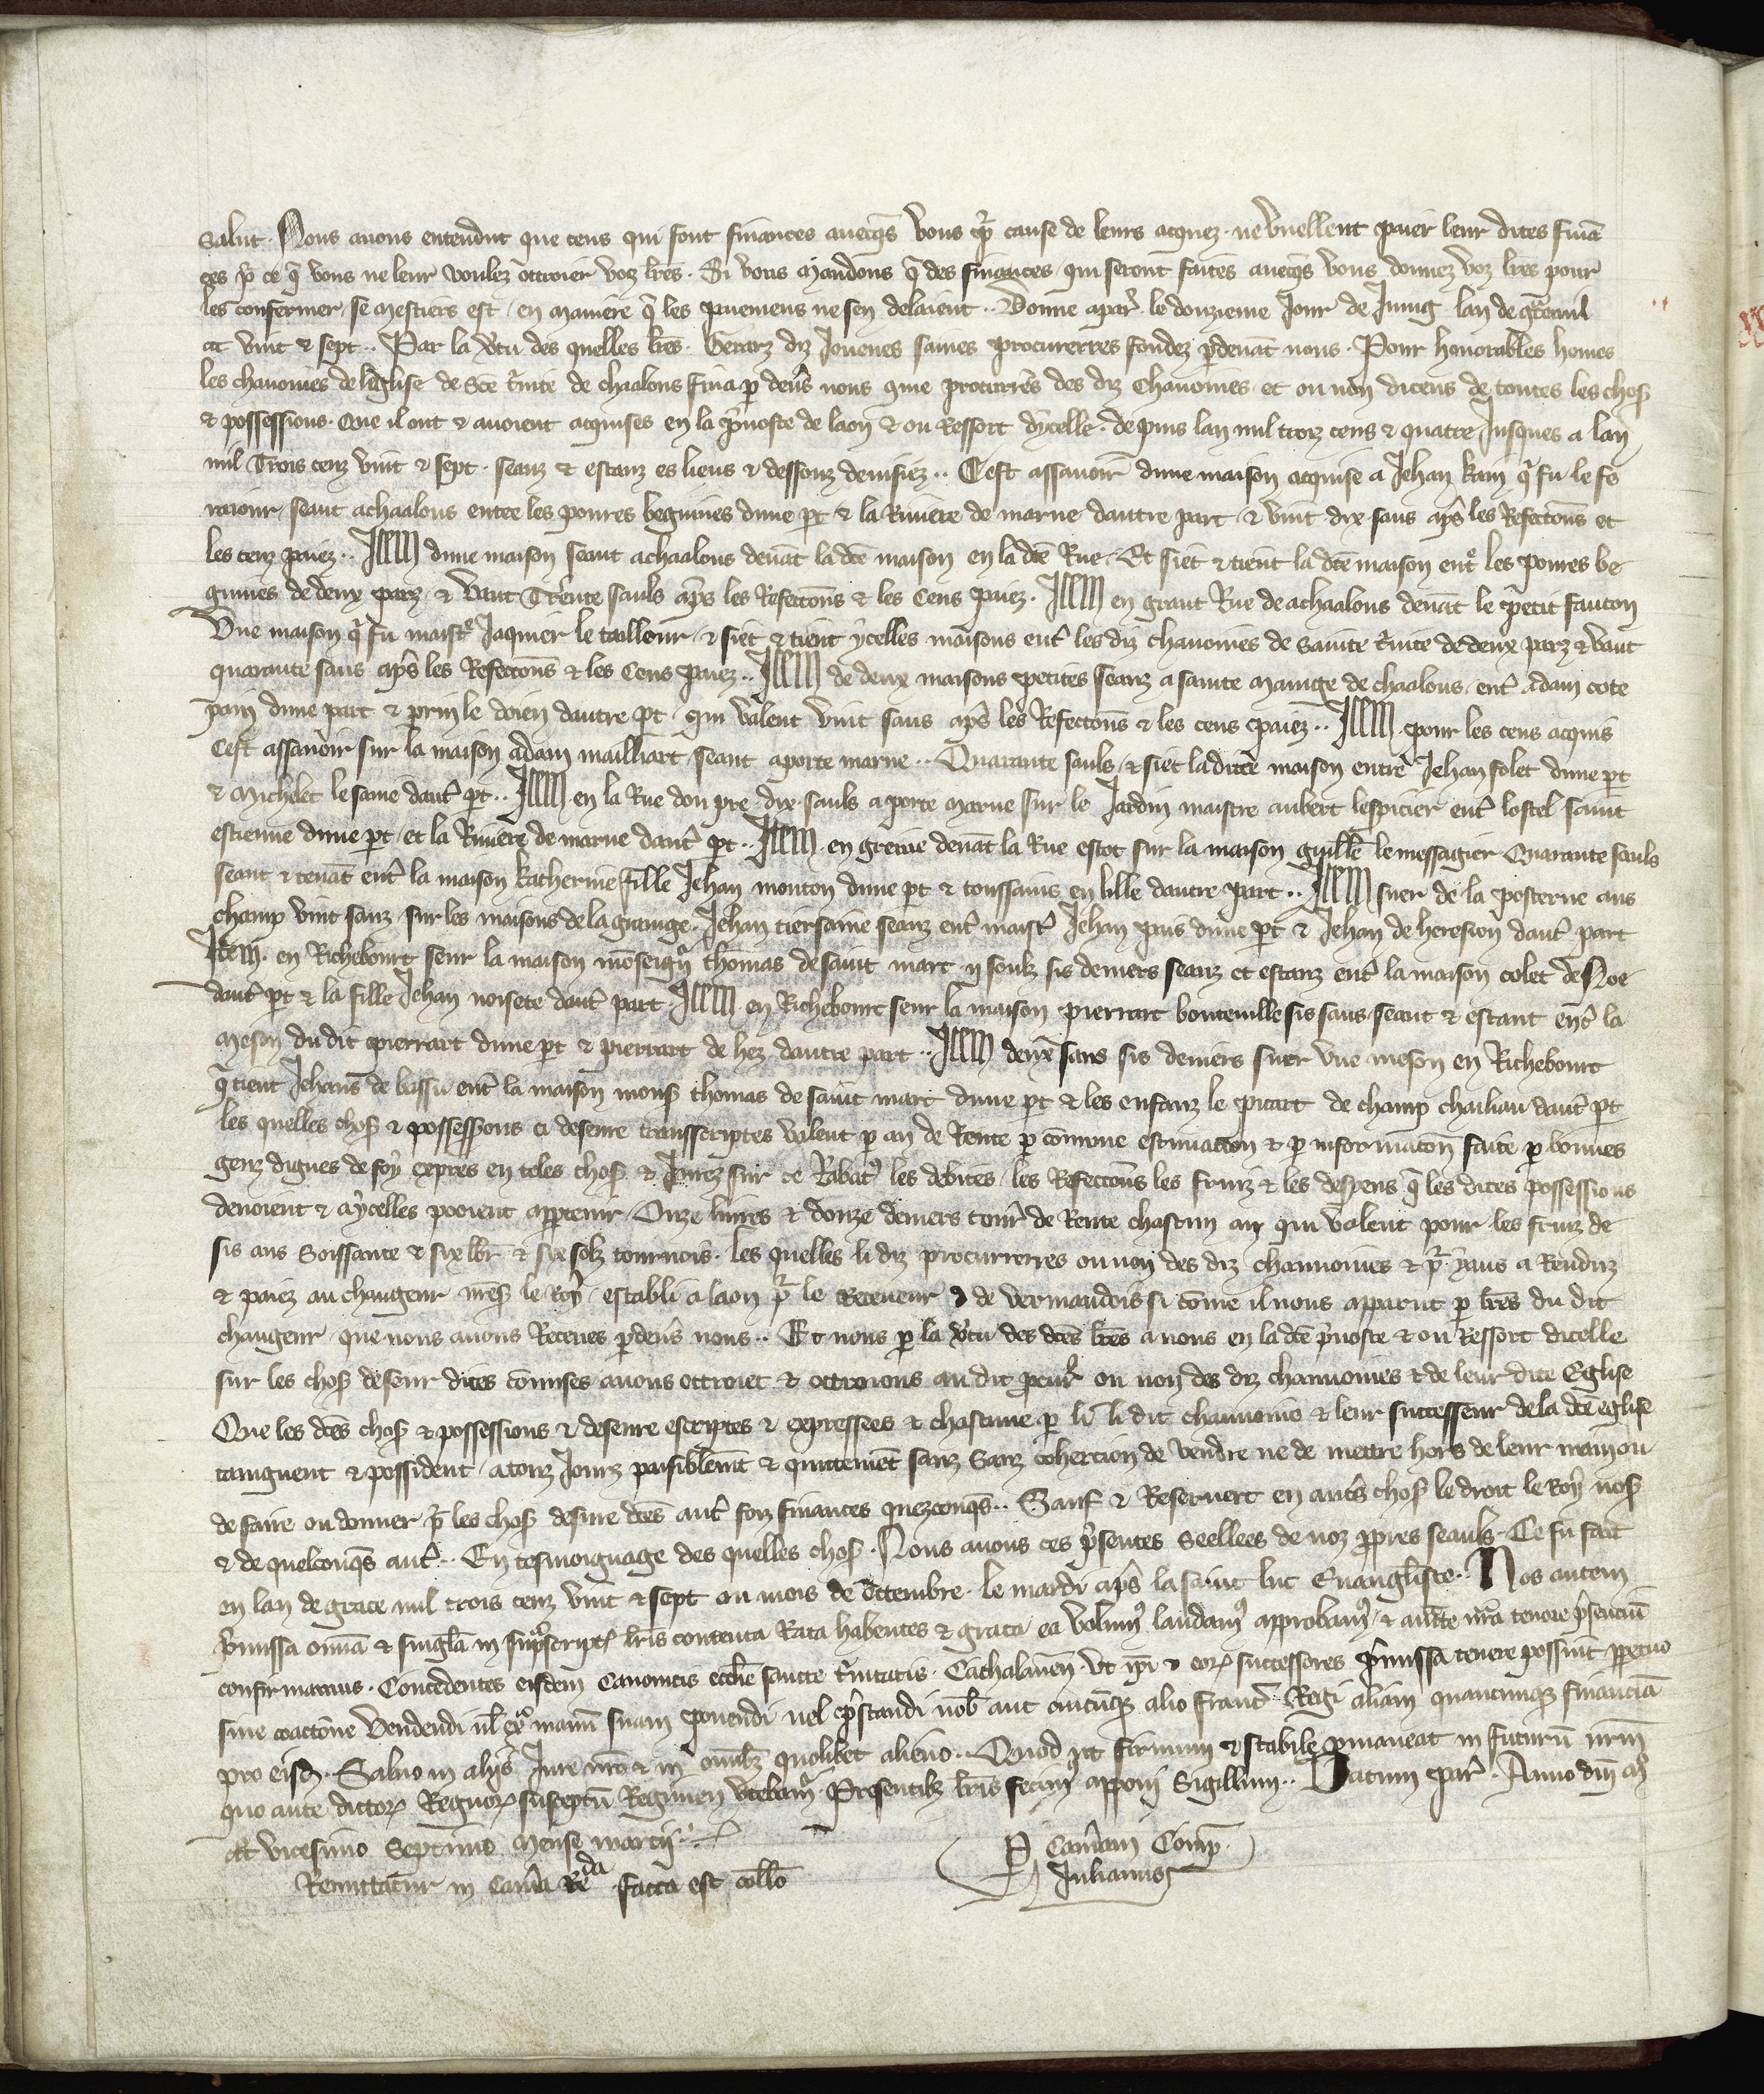 Salut. Nous auons entendut que ceus qui font finances auecqs vous pr cause de leurs acquez. ne vuellent paier leur dites finã
ces pr ce q̃ vous ne leur voulez ottroier voz lr̃es. Si vous mandons q̃ des finances qui seront faites auecqs vous donnez voz lr̃es pour
les confermer se mestiers est en maniere q̃ les paiemens ne sen delaient.. Donne a par̃ le douzieme Jour de Juing lan de grace mil
ccc vint & sept.. Par la v̾tu des quelles lr̃es. Gerarz diz Jouenes sainnes procurerres fondez p̱deuãt nous. Pour honorables homes
les chanoines de leglise de Sc̃e t̾nite de chaalons fina p̱ deu̾s nous cõme procurr̃es des diz Chanoines. et ou non diceus de toutes les choses
& possessions. Que il ont & auoient acquises en la p̾uoste de laon & ou Ressort dycelle. depuis lan mil trois cens & quatre Jusques a lan
mil Trois cenz vint & sept. seanz & estanz es lieus & dessouz deuisiez.. Cest assauoir dune maison acquise a Jehan kain q̃ fu le fe
 seant a chaalons entre les poures beguines dune p̱t & la Riuiere de marne dautre part & vint dix saus ap̃s les Refeccõns et
les cenz paiez.. Item dune maison seant a chaalons deuãt la dc̃e maison en la dc̃e Rue. Et siet & tient la dc̃e maison ent̾ les poures be
guines de deux parz & vaut Trente sauls ap̃s les Refeccõns & les Cens paiez. Item en grant Rue de achaalons deuãt le petit fauton
Vne maison q̃ fu maist̾ Jaquier le tailleur & siet & tient ycelles maisons ent̾ les diz chanoines de sainte t̾nite de deux parz & vaut
quarante saus ap̃s les Refeccõns & les Cens paiez.. Item de deux maisons petites seanz a sainte Manige de chaalons. ent̾ Adam cote
pain dune part & perrin le doien dautre p̱t qui valent vint saus ap̃s les Refeccõns & les cens paiez.. Item pour les cens acquis
Cest assauoir sur la maison adam mailliart seant a porte marne.. Quarante sauls & siet la dicte maison entre Jehan folet dune p̱t
& Michelet le saine daut̾ p̱t.. Item en la Rue dou pre dix sauls a porte Marne sur le Jardin maistre aubert lespicier ent̾ lostel saint
estienne dune p̱t et la Riuiere de marne daut̾ p̱t.. Item en greue deuãt la Rue estot sur la maison guille̅ le messagier Quarante sauls
seant & tenãt ent̾ la maison katherine fille Jehan mouton dune p̱t & toussains en lille dautre part.. Item suer de la posterne aus
champ vint sauz sur les maisons de la grange. Jehan tiersaine seanz ent̾ maist̾ Jehan pais dune p̱t & Jehan de heresson daut̾ part
Item. en Richebourt seur la maison mõseignr̃ thomas de saint marc ij soulz sis deniers seanz et estanz ent̾ la maison colet de Noe
daut̾ p̱t & la fille Jehan noisete daut̾ part Item en Richebourt seur la maison pierrart bouteuille sis saus seant & estant ent̾ la
meson du dit pierrart dune p̱t & pierrart de hez dautre part.. Item deux saus sis deniers suer vne meson en Richebourt
q̃ tient Jehans de bussu ent̾ la maison mons̾ thomas de saint marc dune p̱t & les enfanz le picart de champ chailiau daut̾ p̱t
les quelles choses & possessions ci deseure transscriptes valent p̱ an de Rente p̱ cõmune estimacion & p̱ informacõn faite p̱ bonnes
genz dignes de foy expers en teles choses & Jurez sur ce Rabat̾ les debites les Refeccõns les fruiz & les despens q̃ les dites possessions
deuoient & a ycelles pooient app̱tenir. Onze liures & douze deniers tour̃ de Rente chascun an qui valent pour les fruiz de
sis ans Soissante & six lib̃r & six solz tournois. les quelles li diz procurerres ou non des diz chanoines & pr̃ yaus a Renduz
& paiez au changeur n̾res le Roy establi a laon pr̃ le Receueur de vermandois si cõme il nous apparut p̱ lr̃es du dit
changeur que nous auons Receues p̱deu̾s nous.. Et nous p̱ la v̾tu des dc̃es lr̃es a nous en la dc̃e p̾uoste & ou Ressort dicelle
sur les choses deseur dites cõmises auons ottroiet & ottroions au dit pcur̃ ou non des diz chanoines & de leur dite Eglise
Que les dc̃es choses & possessions & deseure escriptes & expressees & chascune p̱ li li dit chanoine & leur successeur de la dc̃e eglise
taignent & possident a touz Jours paisiblem̃t & quittemẽt sanz Sanz cohercion de vendre ne de mettre hors de leur main ou
de faire ou donner pr̃ les choses desure dc̃es aut̾ fois finances quezconqs̃.. Sauf & Reseruet en aut̾s choses le droit le Roy nos̾
& de quelconqs̃ aut̾.. En tesmoignage des quelles choses. Nous auons ces p̾sentes Seellees de noz pp̱res seauls. Ce fu fait
en lan de grace mil trois cenz vint & sept ou mois de Octembre. le mardi ap̃s la saint luc Euangliste. Nos autem
p̾missa om̃ia & singl̃a in sup̱scriptis lr̃is contenta Rata habentes & grata ea volum̾ laudam̾ approbam̾ & aucte nr̃a tenore p̾senciũ
confirmamus. Concedentes eisdem Canonicis ecclẽ sancte t̾nitatis. Cathalanẽn. vt ip̃i & eor̃ successores p̾missa tenere possint ppetuo
sine coaccione vendendi ul̃ ex̾ manũ suam ponendi uel p̾standi nob̃ aut cuicũq; alio franc̃ Regi aliam quancunq; financiã
pro eisd̃. Saluo in alijs Jure nr̃o & in om̃ib; quolibet alieno.. Quod ut firmum & stabile p̱maneat in futurũ nrm̃
quo ante dictor̃ Regnor̃ susceptũ Regimen vtebam̾ Presentib; lr̃is fecim̾ apponi Sigillum.. Datum par̃. Anno dñi m̊
ccc̊ vicesimo Septimo Mense marcij..
P Cam̃am Comp̃.
Julianus
Remittatur in Cam̃a Reda facta est coll̃o